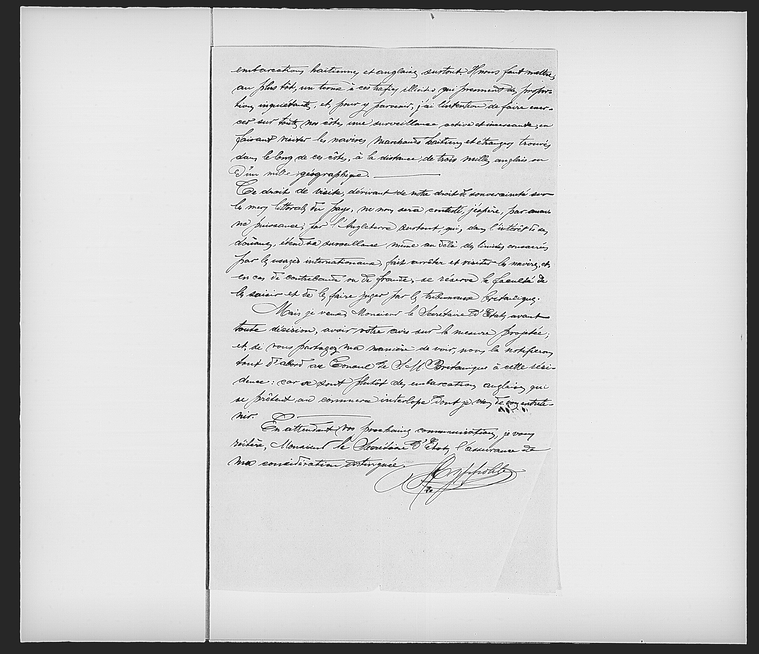 embarcations haïtiennes et anglaises surtout. Il nous faut mettre,
au plus tôt, un terme à ces trafics illicites qui prennent des propor-
tions inquiétantes, et, pour y parvenir, j'ai l'intention de faire exer-
cer sur toutes nos côtes une surveillance active et incessante, en
faisant visiter les navires marchands haïtiens et étrangers trouvés
dans le long de ces côtes, à la distance de trois milles anglais ou
d'un mille géographique.
Ce droit de visite, dérivant de notre droit de souveraineté sur
les mers littorales du pays, ne nous sera contesté, j'espère, par aucu-
ne puissance; par l'Angleterre surtout qui, dans l'intérêt de ses
douanes, étend sa surveillance même au delà des limites consacrées
par les usages internationaux, fait arrêter et visiter les navires, et,
en cas de contrebande ou de fraude, se réserve la faculté de
les saisir et de les faire juger par les tribunaux britanniques.
Mais je veux, Monsieur le Secrétaire d'Etat, avant
toute décision, avoir votre avis sur la mesure projetée,
et, si vous partagez ma manière de voir, nous la notifierons
tout d'abord au Consul de S. M. Britannique à cette rési-
dence: car ce sont plutôt des embarcations anglaises qui
se prêtent au commerce interlope dont je viens de vous entrete-
nir.
En attendant vos prochaines communications, je vous
réitère, Monsieur le Secrétaire d'Etat, l'assurance de
ma considération distinguée.
Hyppolite